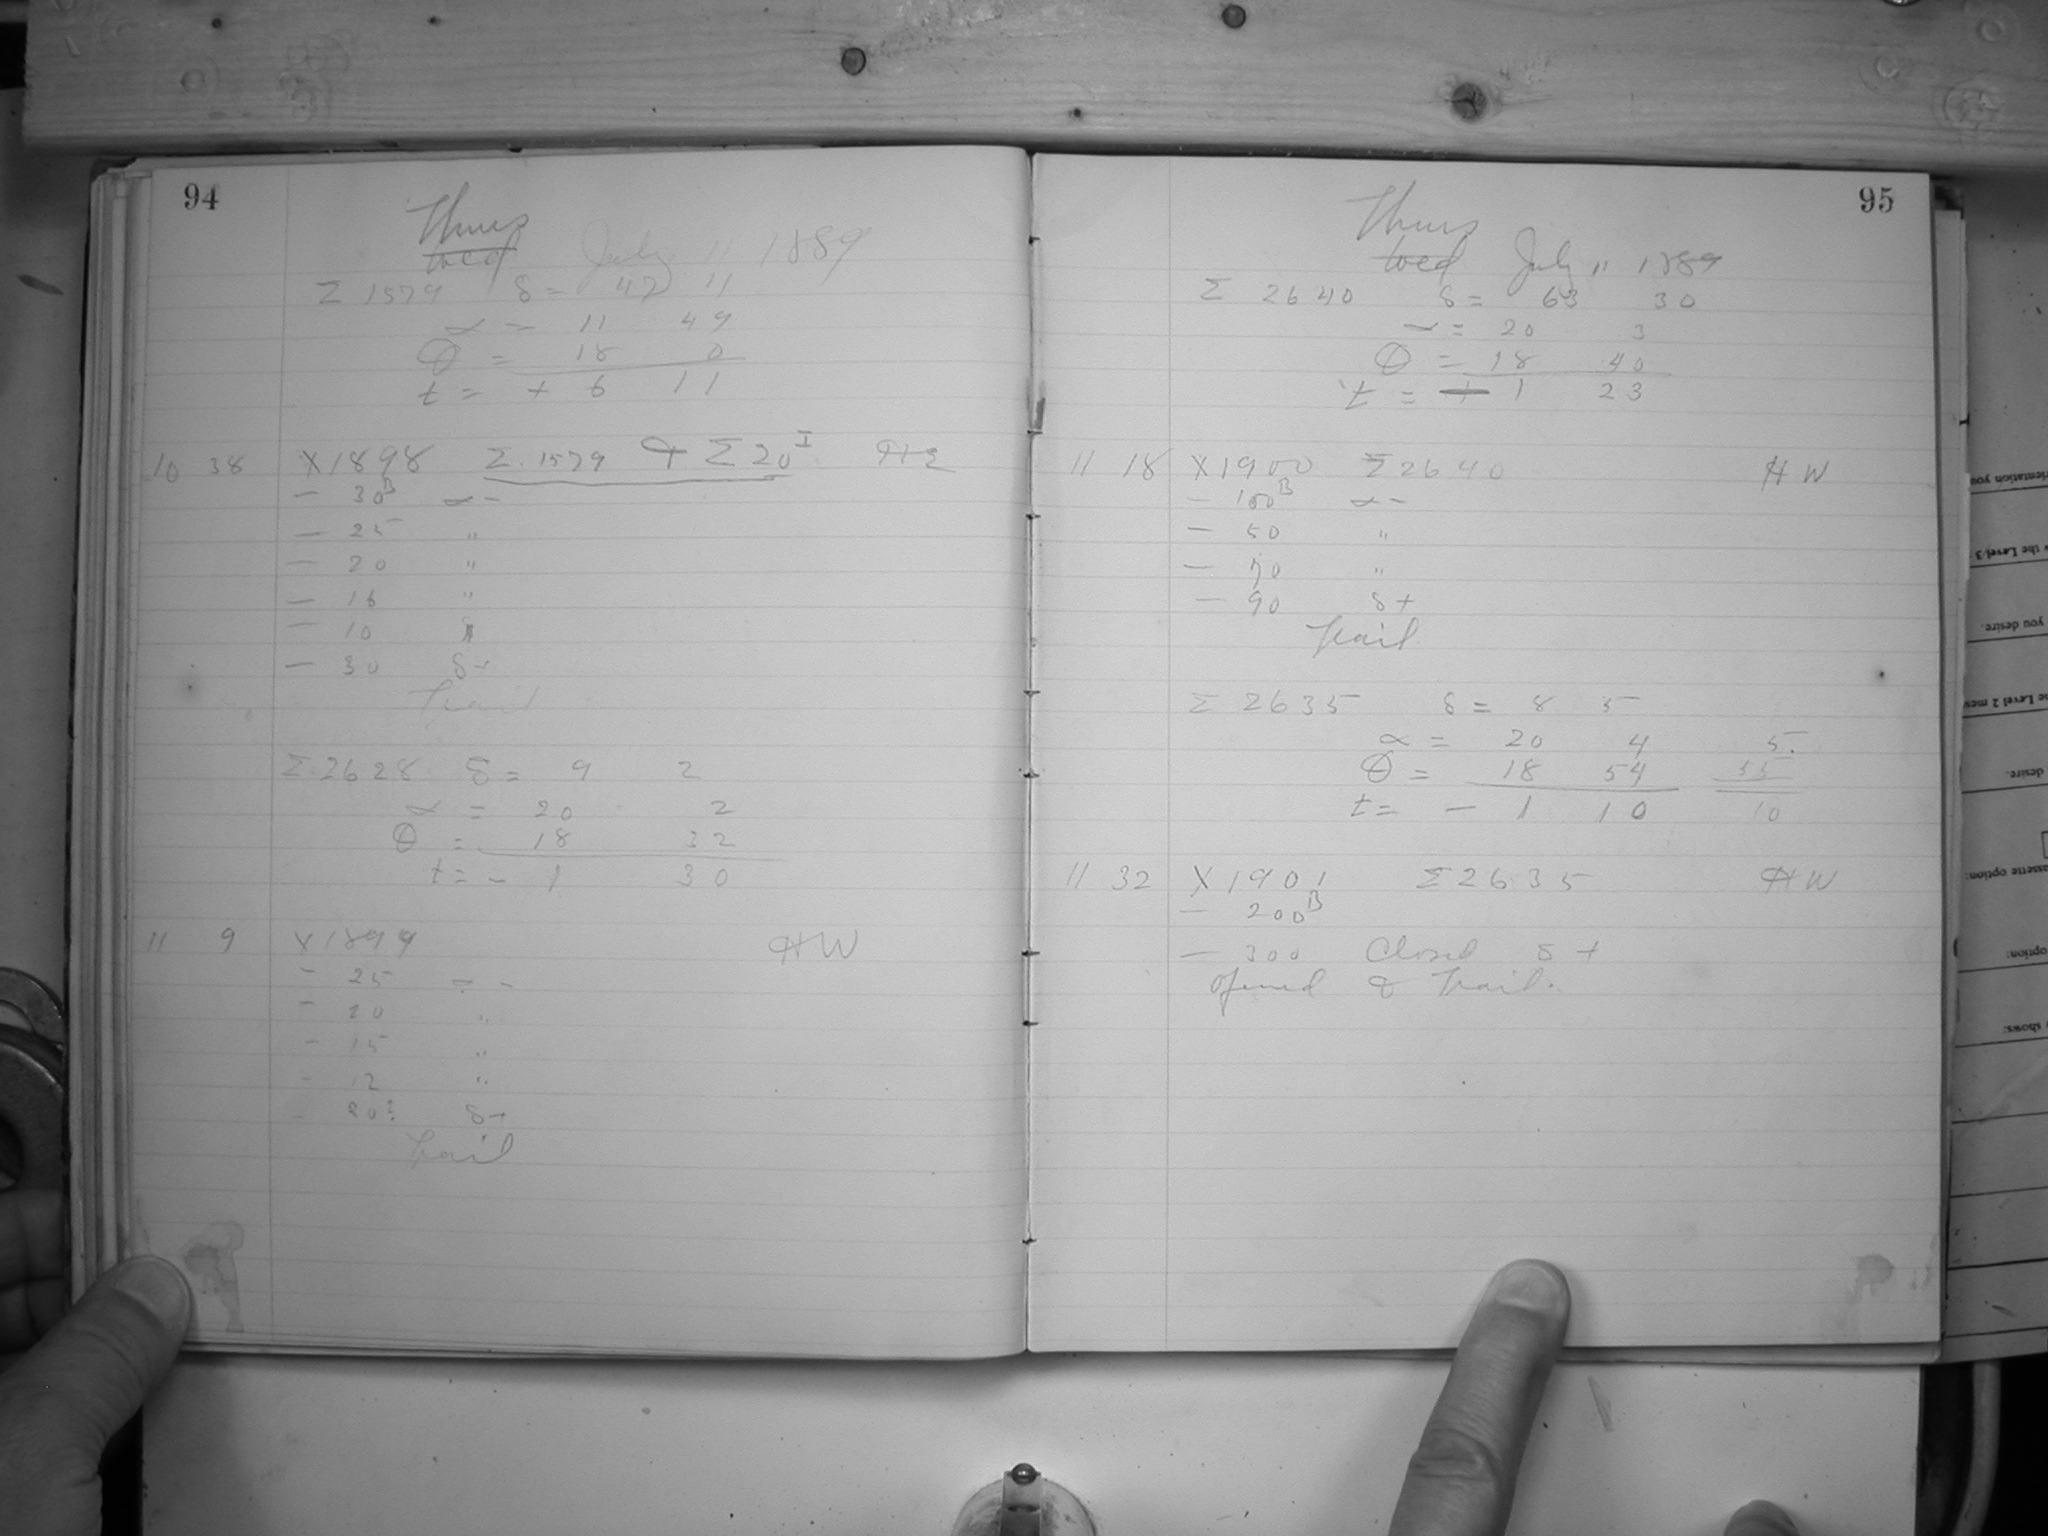 94
Thurs
Wed July 11 1889
Σ 1579 δ = 47 11
α = 11 49
θ = 18 0
t = + 6 11
10 38 X1898 Σ.1579 & Σ 20 I
- 30 B α -
- 25 "
- 20 "
- 16 "
- 10
- 30 δ +
Trail
Σ.2628 δ = 9 2
α = 20 2
θ = 18 32
t = - 1 30
11 9 X1899 HW
- 25 α -
- 20 "
- 15 "
- 12 "
- 20? δ +
Trail
95
Thurs
Wed July 11 1889
Σ 2640 δ = 63 30
α = 20 3
θ = 18 40
t = - 1 23
11 18 X1900 Σ2640 HW
- 100 B α -
- 50 "
- 70 "
- 90 δ +
Trail
Σ 2635 δ = 8 5
α = 20 4 5
θ = 18 54 55
t = - 1 10 10
11 32 X1901 Σ2635 HW
- 200 B
- 300 Closed δ +
opened & Trail.
you desire.
desire.
option:
shows: